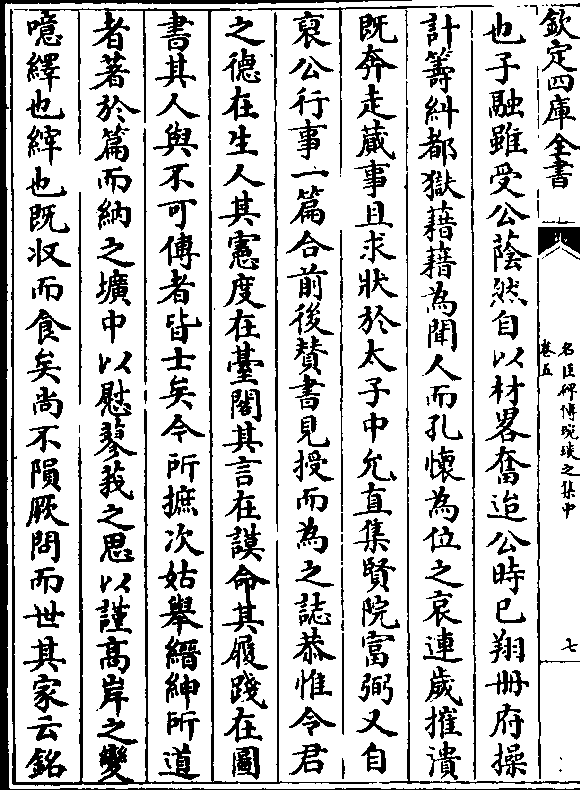 欽定四庫全書
名臣碑傳琬琰之集中
卷五
七
也子融雖受公蔭然自以材畧奮迨公時已翔册府操
計籌糾都獄藉藉為聞人而孔懷為位之哀連歲摧潰
既奔走蕆事且求狀於太子中允直集賢院富弼又自
裒公行事一篇合前後贊書見授而為之誌恭惟令君
之德在生人其憲度在臺閣其言在謨命其履踐在圖
書其人與不可傳者皆士矣今所摭次姑舉縉紳所道
者著於篇而納之壙中以慰蓼莪之思以謹髙岸之變
噫繹也縡也既收而食矣尚不隕厥問而世其家云銘